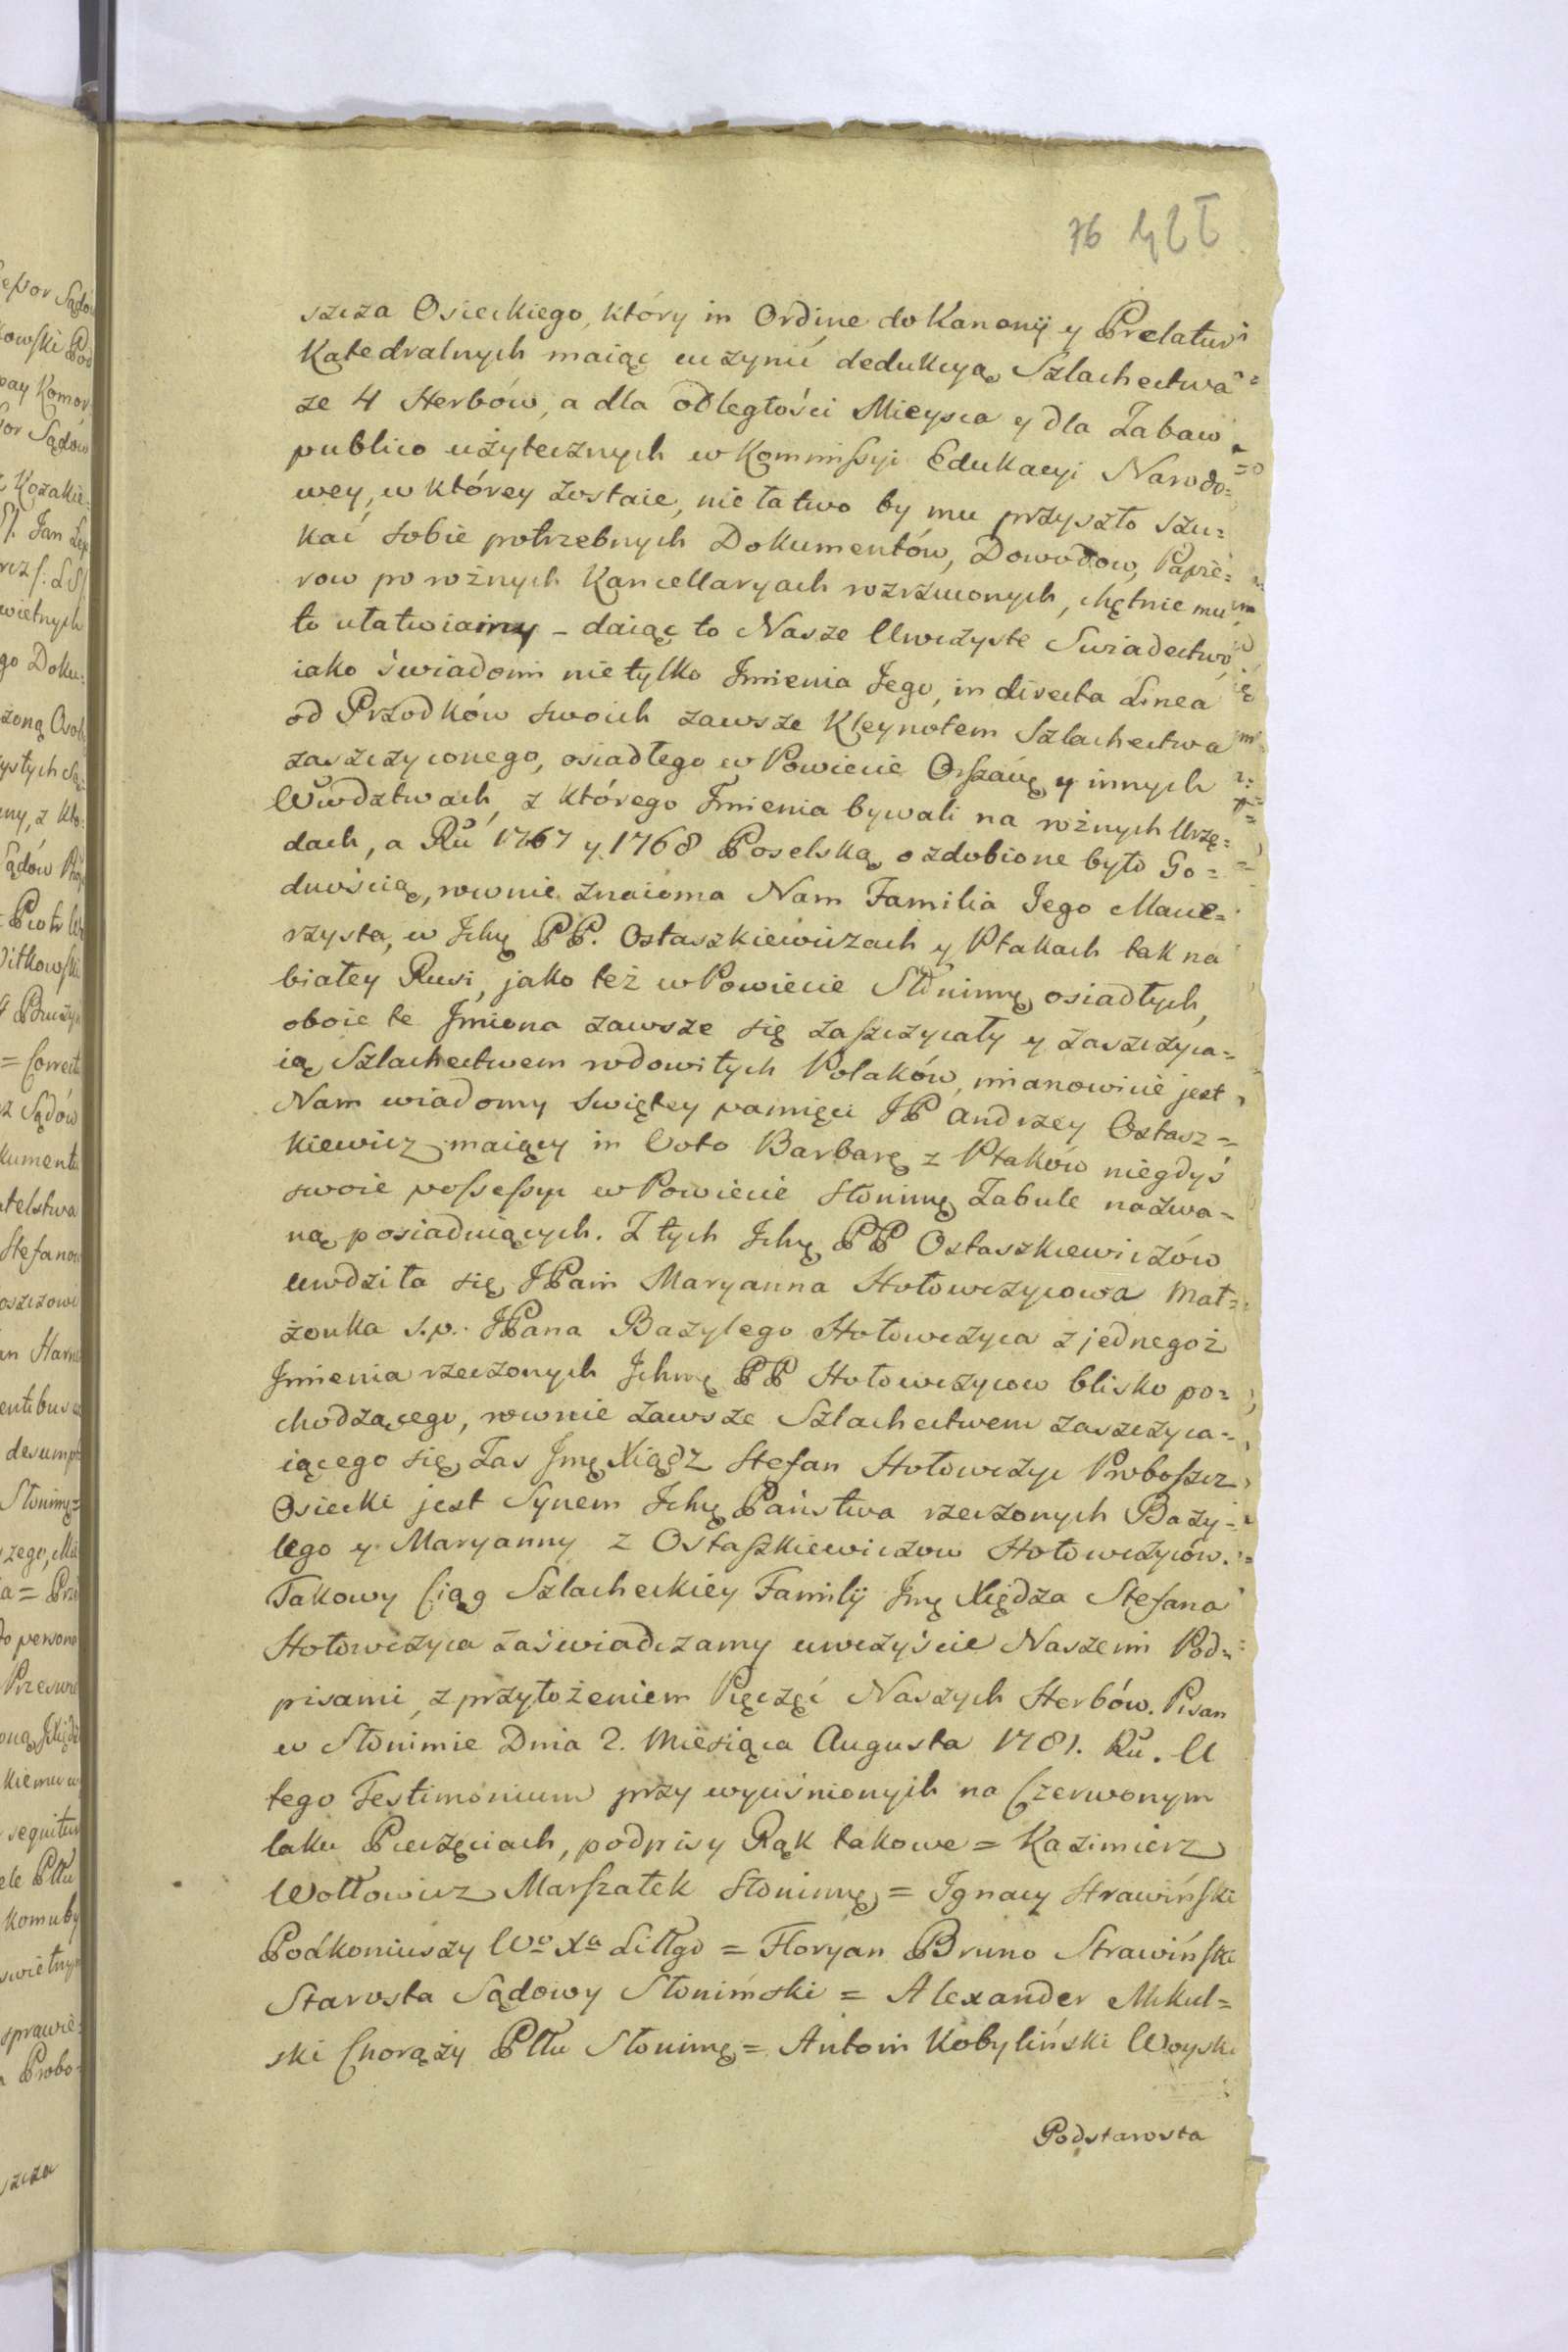 76
szcza Osieckiego, który in Ordine do Kanonij y Prelatur
Katedralnych maiąc uczynić dedukcyą Szlachectwa
ze 4 Herbów, a dla odległości Mieysca y dla Zabaw
publico użytecznych w Kommissyi Edukacyi Narodo=
wey, w którey zostaie, nie łatwo by mu przyszło szu=
kać sobie potrzebnych Dokumentów, Dowodow, Papie=
row po rożnych Kancellaryach rozrzuconych, chętnie mu
to ułatwiamy – daiąc to Nasze Uwczyste Swiadectwo,
iako świadomi nie tylko Jmienia Jego, in directa Linea
od Przodków swoich zawsze Kleynotem Szlachectwa
zaszczyconego, osiadłego w Powiecie Orszańę y innych
Wwdztwach, z którego Jmienia bywali na rożnych Urzę=
dach, a Ru 1767 y 1768 Poselską ozdobione było Go=
dnością, rownie znaioma Nam Familia Jego Macie=
rzysta, w Jchę PP. Ostaszkiewiczach y Ptakach tak na
białey Rusi, jako też w Powiecie Słonimę osiadłych,
oboie te Jmiona zawsze się zaszczycały y zaszczyca=
ią Szlachectwem rodowitych Polaków, mianowicie jest
Nam wiadomy swiętey pamięci JP Andrzey Ostasz=
kiewicz maiący in Voto Barbarę z Ptaków niegdyś
swoie possessyi w Powiecie Słonimę Zabule nazwa=
ną posiadaiących. Z tych Jchę PP Ostaszkiewiczów
urodziła się JPani Maryanna Hołowczycowa Mał=
żonka s.p. JPana Bazylego Hołowczyca z jednegoż
Jmienia rzeczonych Jchmę PP Hołowczycow blisko po=
chodzącego, rownie zawsze Szlachectwem zaszczyca=
iącego się, Zas Jmę Xiądz Stefan Hołowczyc Proboszcz
Osiecki jest Synem Jchę Państwa rzeczonych Bazy=
lego y Maryanny z Ostaszkiewiczow Hołowczyców.
Takowy Ciąg Szlacheckiey Familij Jmę Xiędza Stefana
Hołowczyca zaświadczamy uwczyście Naszemi Pod=
pisami, z przyłożeniem Pięczęć Naszych Herbów. Pisan
w Słonimie Dnia 2. Miesiąca Augusta 1781. Ru. U
tego Testimonium przy wyciśnionych na Czerwonym
laku Pieczęciach, podpisy Rąk takowe = Kazimierz
Wołłowicz Marszałek Słonimę = Jgnacy Strawiński
Podkoniuszy Wo Xa Littgo = Floryan Bruno Strawiński
Starosta Sądowy Słonimski = Alexander Mikul=
ski Chorąży Pttu Słonimę = Antoni Kobyliński Woyski
Podstarosta